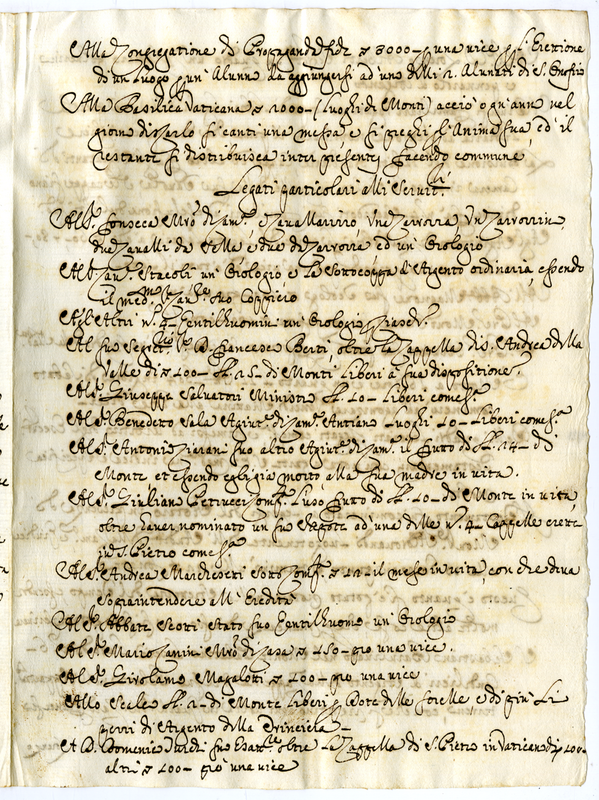 Alla Congregatione di Propaganda fide ▽ 3000 – una vice p. l'Erettione
di un Luogo p. un' Alunno da aggiungersi ad' uno delli 2. Alunati di S. Onofrio
Alla Basilica Vaticana ▽ 1000 – (Luoghi di Monti) acciò ogn' anno nel
giorno di Carlo si canti una messa e si preghi p. l'Anima sua, ed' il
restante si distribuisca inter presentes facendo commune
Legati particolari alli Servit.ri
Al S.r Fonseca M.ro di Cam.a Cavallarizzo, Una Carrozza, Un Carrozzin,
due Cavalli da Sella e due da Carrozza ed un' Orologio
Al Cau.r Stacoli un' Orologio e la Sottocoppa d'Argento ordinaria, essendo
il med.mo Cau.re suo Coppiero
Agl' Altri n.o 4 – Gentilhuomini un' Orologio p. ciasch.o
Al suo Segret.rio S.r D. Francesco Berti, oltre la Cappella di S. Andrea della
Valle di ▽ 100 – ll. 25 – di Monti liberi à sua dispositione.
Al S.r Giuseppe Salvatori Ministro ll. 20 – liberi come s.a
Al S.r Benedetto Sala Agiut.e di Cam.a Antiano Luoghi 20 – liberi come s.a
Al S.r Antonio suo altro Agiut.e di Cam.a il frutto di ll. 14 – di
Monte, et essendo egli già morto alla sua madre in vita.
Al S.r Giuliano Petrucci l'uso frutto di ll. 20 – di Monte in vita,
oltre haver nominato un suo Nepote ad' una delle n.o 4 – Cappelle erette
in S. Pietro come s.a
Al S.r Andrea Marchesetti Sotto ▽ 12 il mese in vita, con che deva
sopraintendere all' Eredità
Al S.r Abbate Scotti stato suo Gentilhuomo un' Orologio
Al S.r Mario M.ro di Casa ▽ 150 – p. una vice.
Al S.r Girolamo Magalotti ▽ 100 – p. una vice
Allo Scalco ll. 2 – di Monte liberi p. Dote delle sorelle, e di più li
ferri di Argento della
A D. Domenico suo oltre la Cappella di S. Pietro in Vaticano di ▽ 100 –
altri ▽ 100 – p. una vice